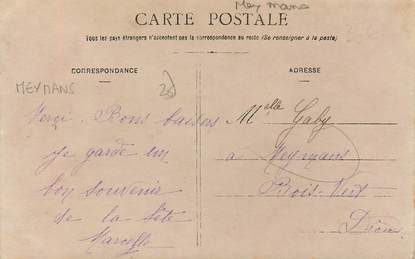 Mey mans
CARTE POSTALE
Tous les pays étrangers n'acceptent pas la correspondance au recto (Se renseigner à la poste)
CORRESPONDANCE
MEYMANS
Merci. Bons baisers
je garde un
bon souvenir
de la fête
Marcelle
ADRESSE
Melle Gaby
à Meymans
Bois-Vert
Drôme